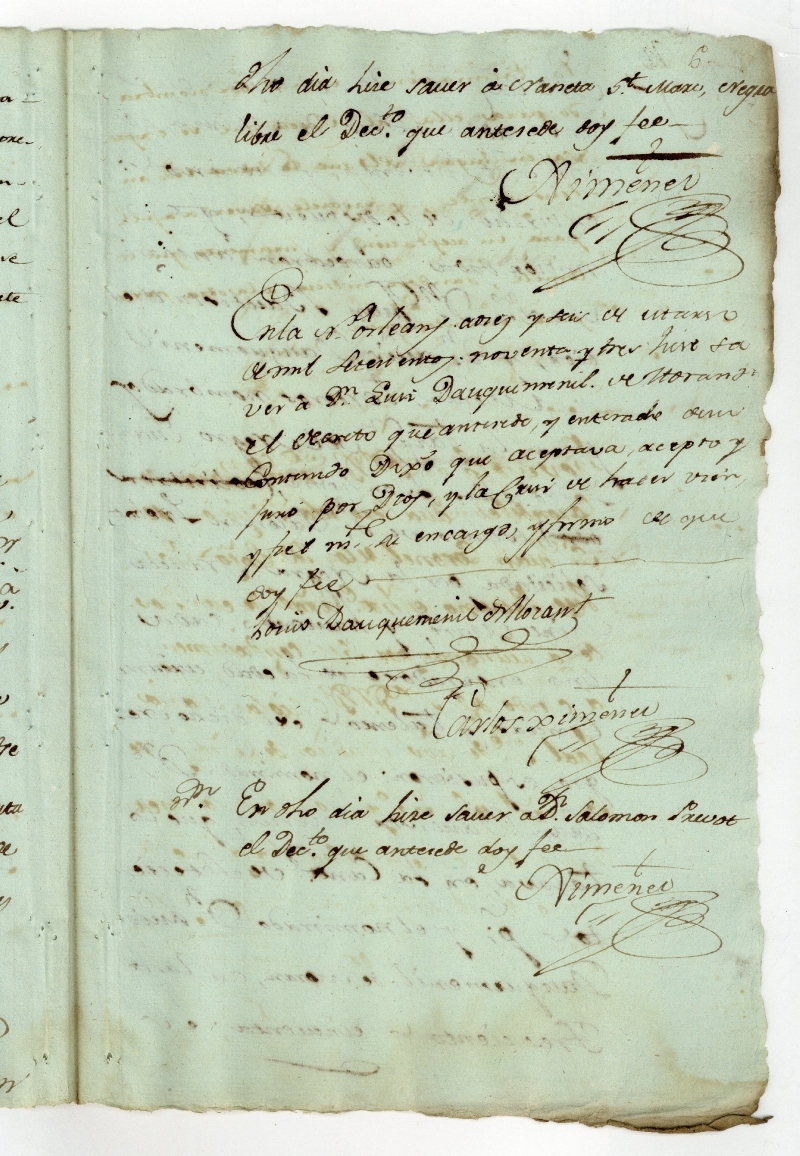 6
dho dia hise saver a Naneta St. Marc, Negra
libre el Decto. que antesede doy fee
Ximenez
En la Na. Orleans a dies y seis de
de mil setesientos noventa y tres hise sa
ver a Dn. Luis Dauquemenil de Morand
el decreto que antesede, y enterado de su
Contenido Dixo que aceptava, acepto y
juro por Dios, y la Cruz de hacer vien
y fielmte. su encargo, y firmo de que
doy fee
Louis Dauquemenil de Morant
Carlos Ximenez
En dho dia hise saver a Dn. Salomon Prevot
el Decto. que antesede doy fee
Ximenez